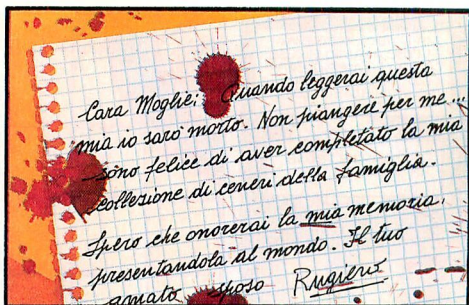 Cara Moglie; Quando leggerai questa
mia io sarò morto. Non piangere per me...
sono felice di aver completato la mia
collezione di ceneri della famiglia.
Spero che onorerai la mia memoria,
presentandola al mondo. Il tuo
amato sposo Rugiero